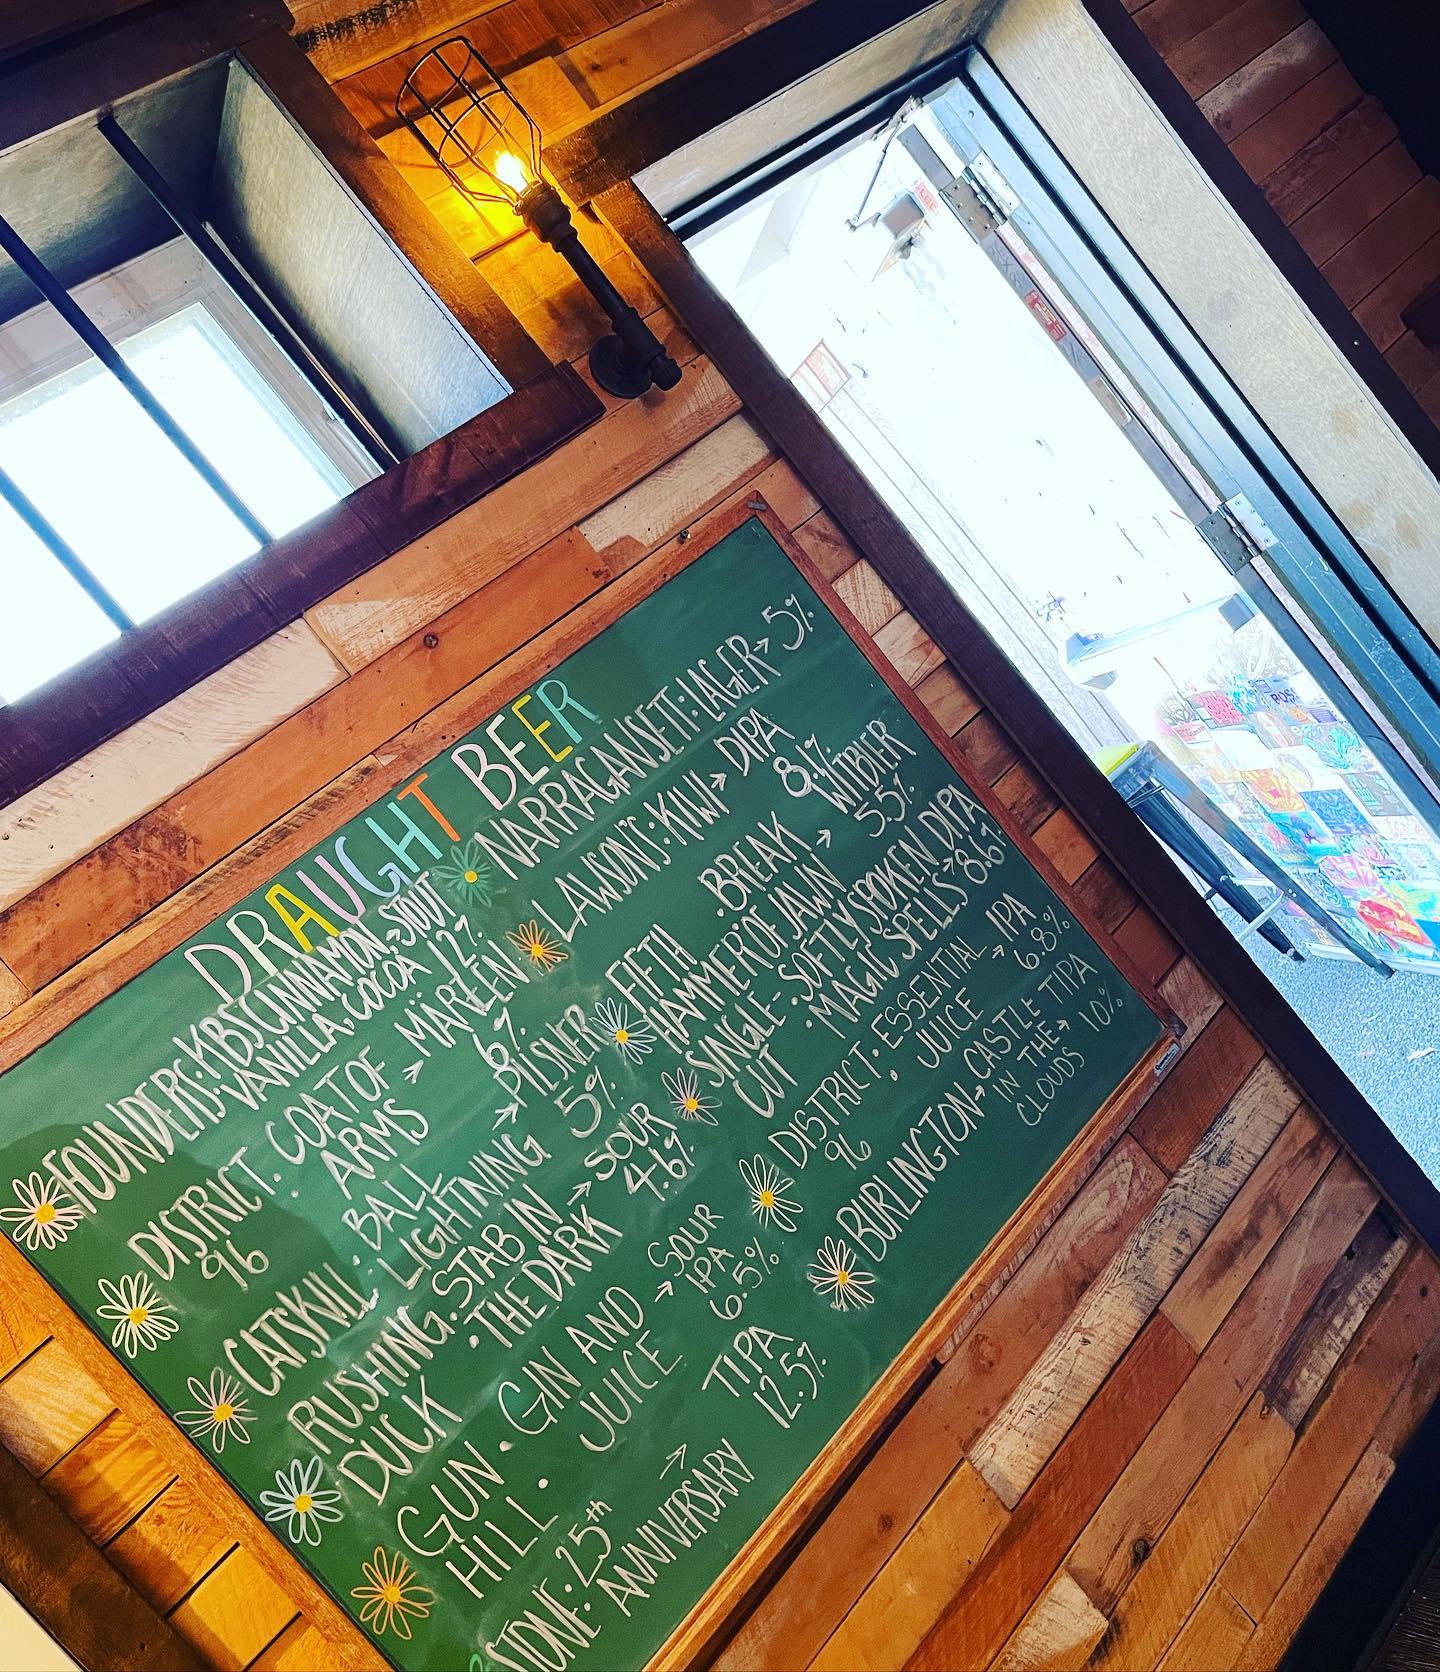 DRAUGHT BEER
FOUNDERS: KBS CINNAMON → STOUT
VANILLA, COCOA 12%
DISTRICT · COAT OF → MÄRZEN
96 ARMS 6%
CATSKILL · BALL → PILSNER
LIGHTNING 5%
RUSHING · STAB IN → SOUR
DUCK · THE DARK 4.6%
GUN · GIN AND → SOUR
HILL · JUICE IPA
6.5%
STONE · 25th → TIPA
ANNIVERSARY 12.5%
NARRAGANSETT: LAGER → 5%
LAWSON'S: KIWI → DIPA
8%
FIFTH · BREAK → WITBIER
HAMMER OF JAWN 5.5%
SINGLE- · SOFTLY SPOKEN DIPA
CUT · MAGIC SPELLS → 8.6%
DISTRICT · ESSENTIAL → IPA
96 · JUICE 6.8%
BURLINGTON → CASTLE TIPA
IN THE → 10%
CLOUDS